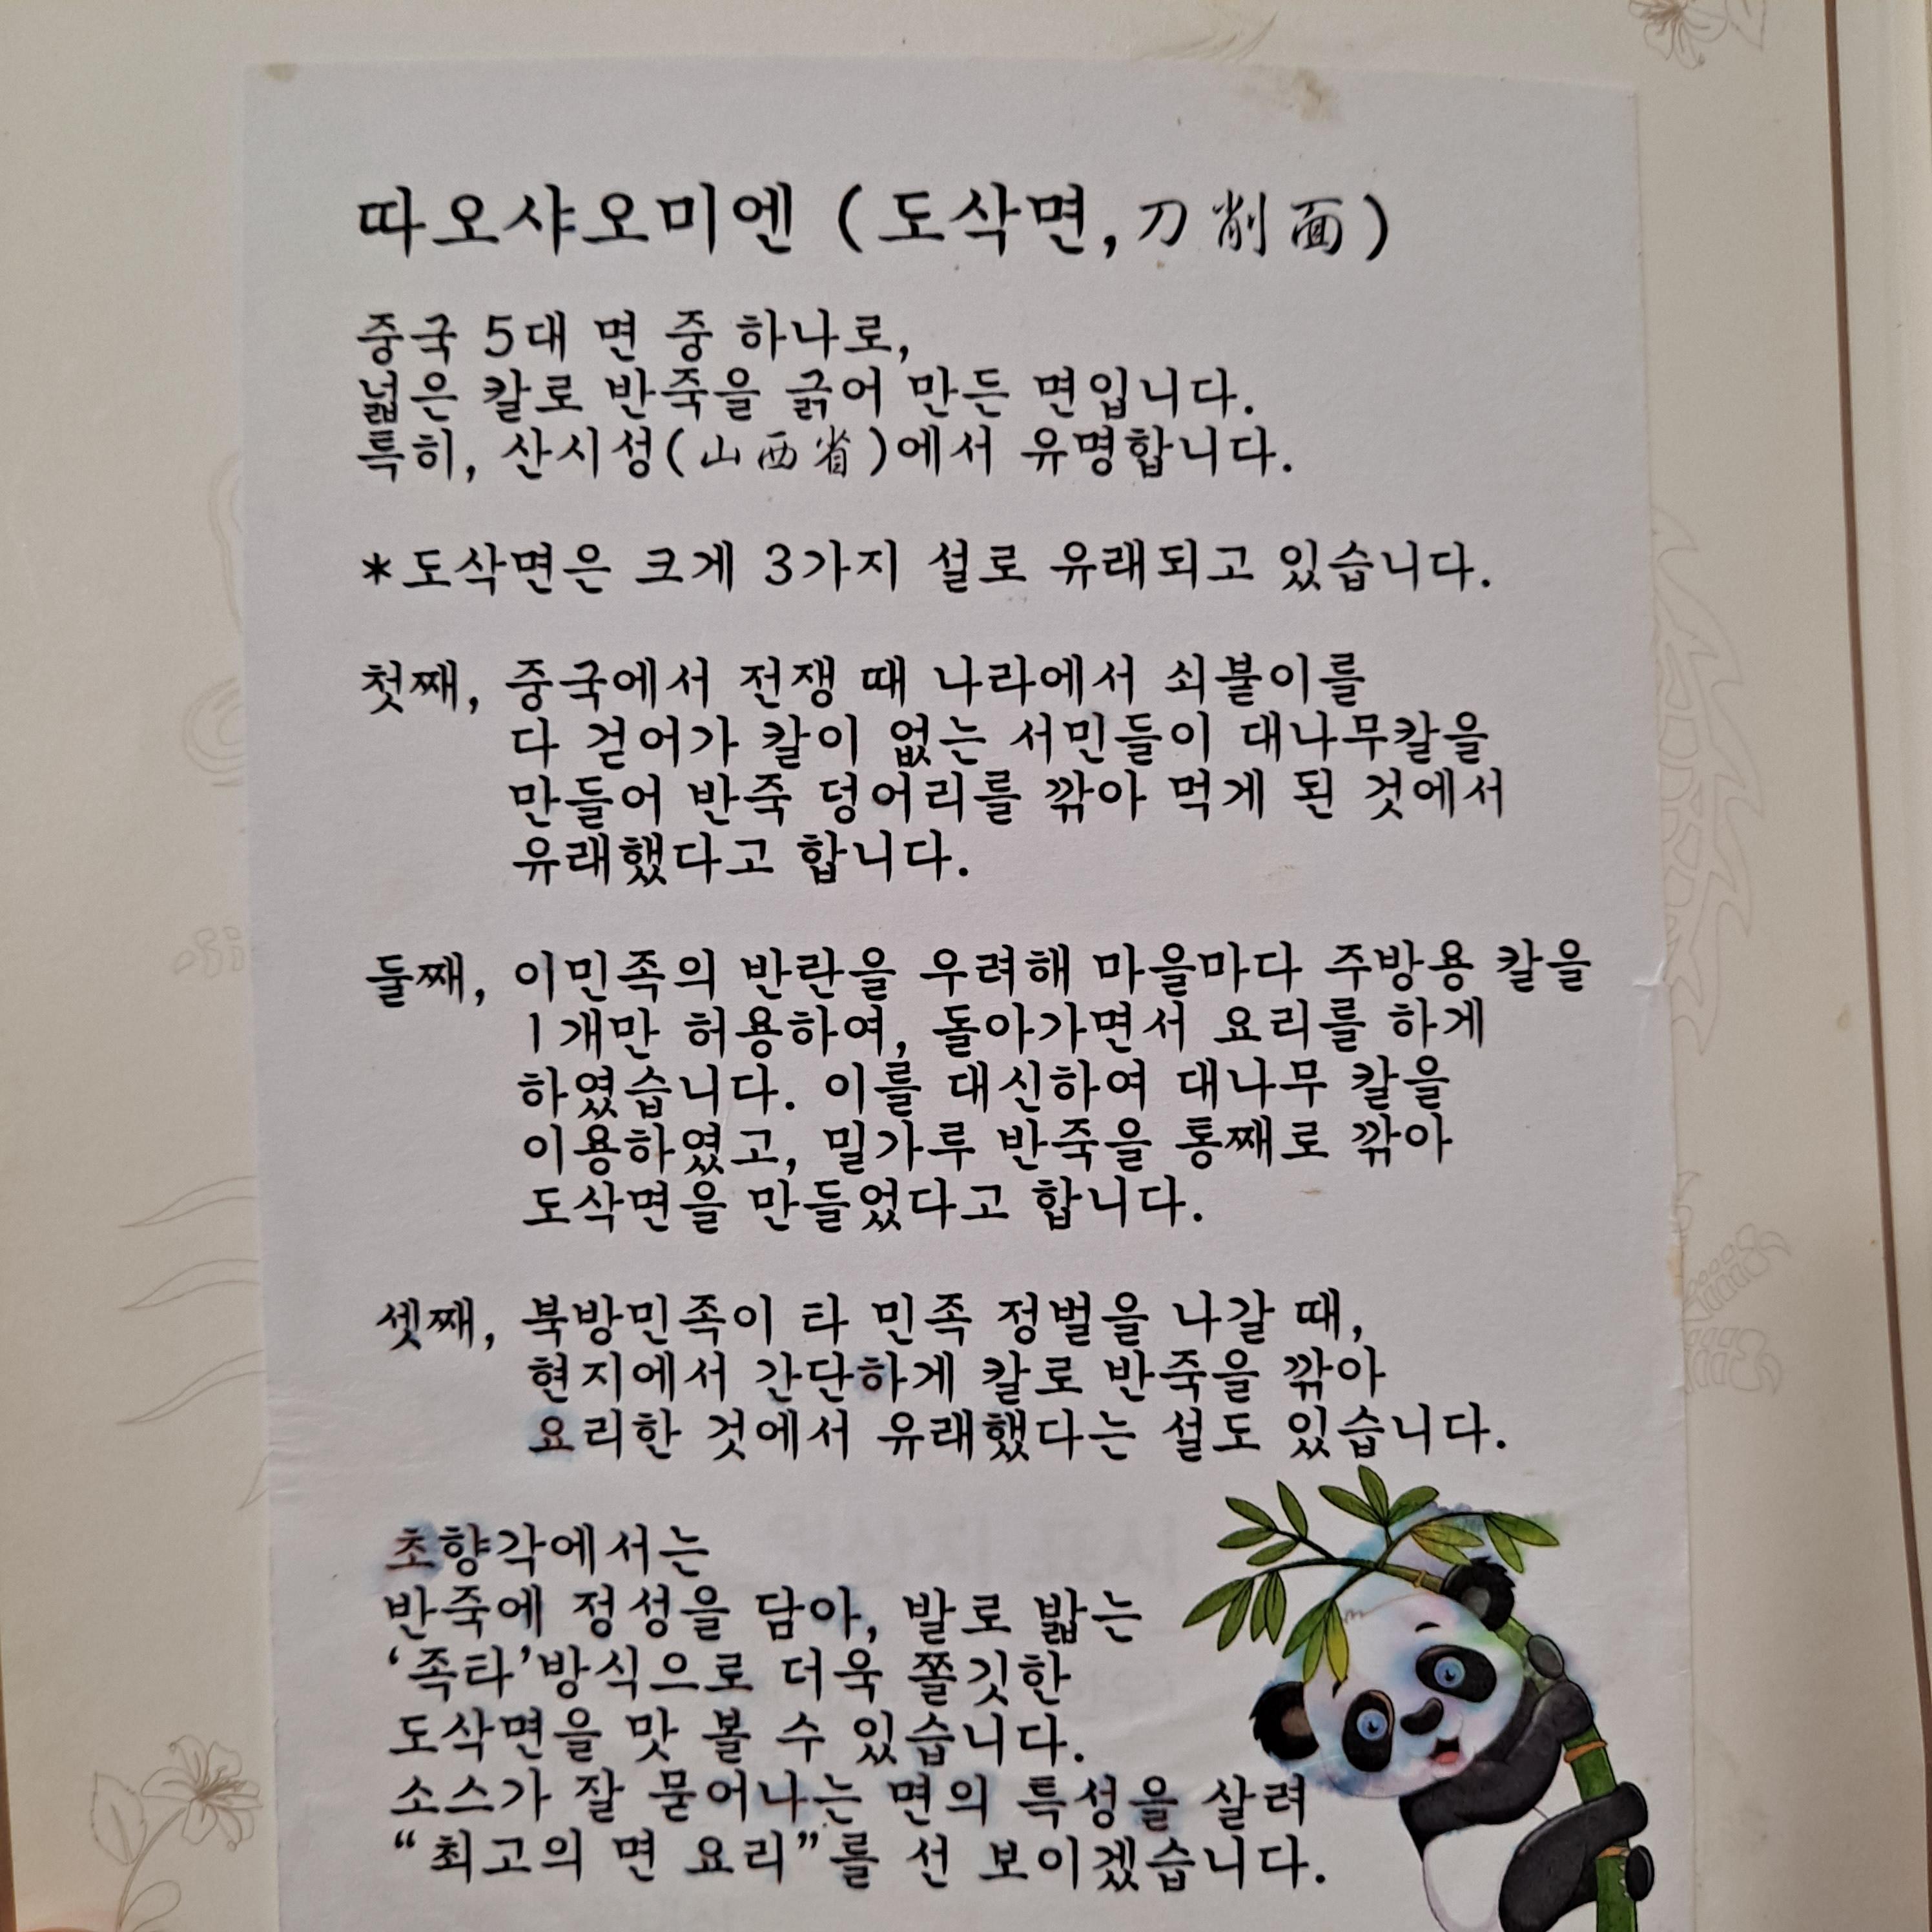 따오샤오미엔 (도삭면,刀削面)
중국 5대 면 중 하나로,
넓은 칼로 반죽을 긁어 만든 면입니다.
특히, 산시성(山西省)에서 유명합니다.
*도삭면은 크게 3가지 설로 유래되고 있습니다.
첫째, 중국에서 전쟁 때 나라에서 쇠붙이를
다 걷어가 칼이 없는 서민들이 대나무칼을
만들어 반죽 덩어리를 깎아 먹게 된 것에서
유래했다고 합니다.
둘째, 이민족의 반란을 우려해 마을마다 주방용 칼을
1개만 허용하여, 돌아가면서 요리를 하게
하였습니다. 이를 대신하여 대나무 칼을
이용하였고, 밀가루 반죽을 통째로 깎아
도삭면을 만들었다고 합니다.
셋째, 북방민족이 타 민족 정벌을 나갈 때,
현지에서 간단하게 칼로 반죽을 깎아
요리한 것에서 유래했다는 설도 있습니다.
초향각에서는
반죽에 정성을 담아, 발로 밟는
‘족타’방식으로 더욱 쫄깃한
도삭면을 맛 볼 수 있습니다.
소스가 잘 묻어나는 면의 특성을 살려
“최고의 면 요리”를 선 보이겠습니다.